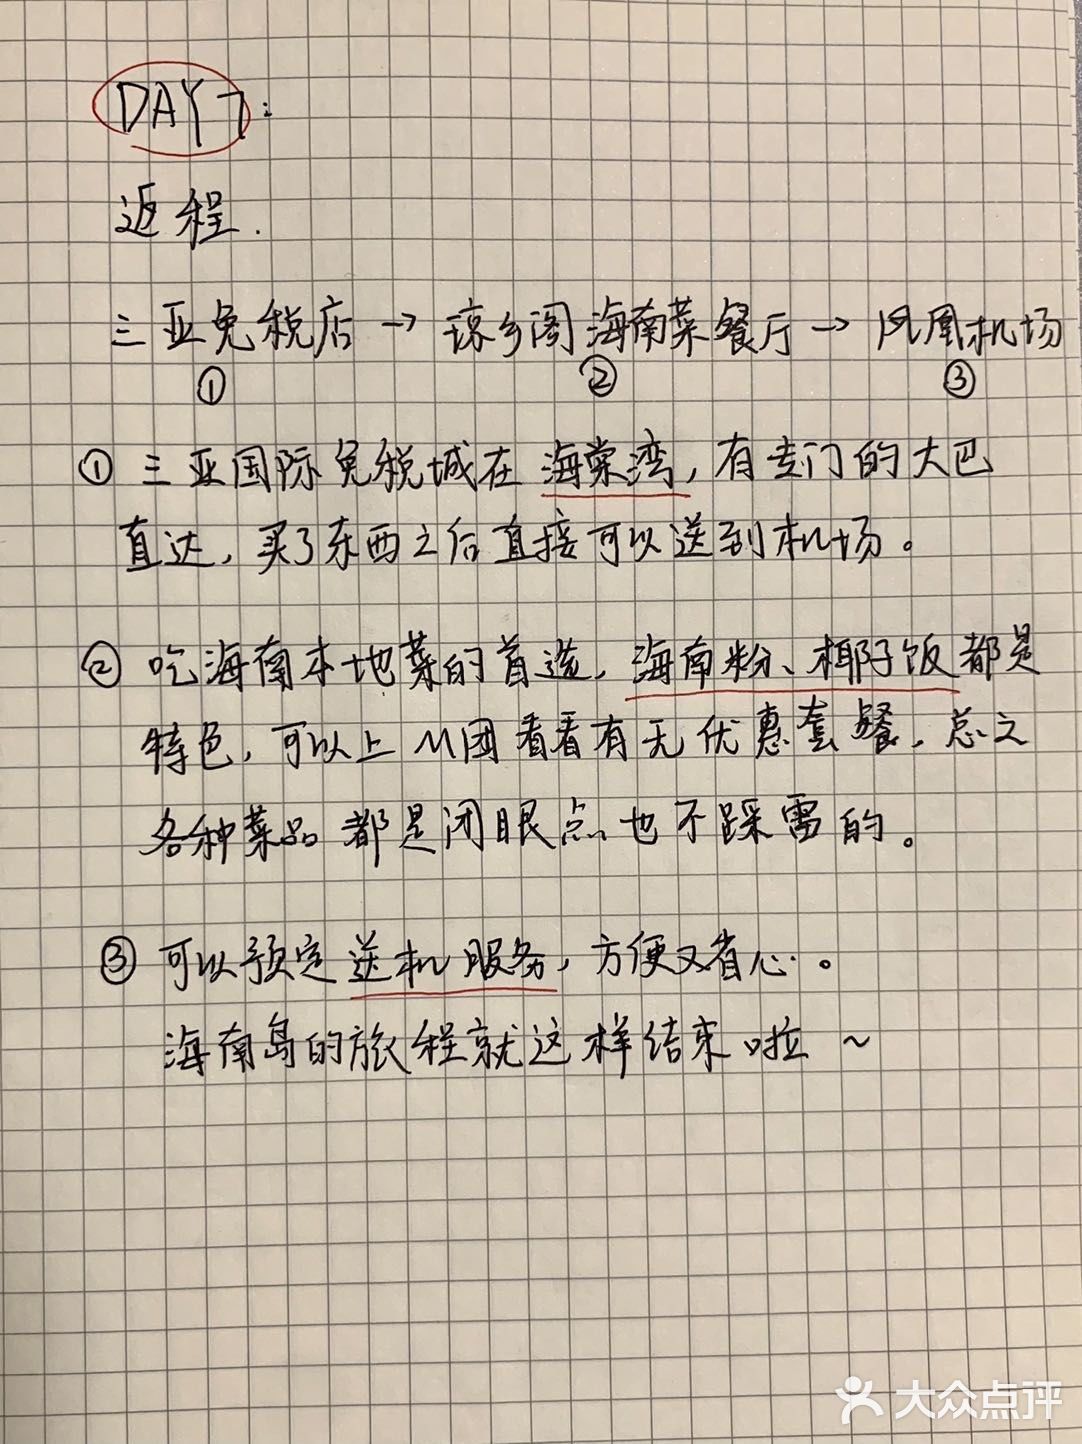 DAY7:
返程.
三亚免税店→琼乡阁海南菜餐厅→凤凰机场
① ② ③
①三亚国际免税城在海棠湾,有专门的大巴
直达,买了东西之后直接可以送到机场。
②吃海南本地菜的首选,海南粉、椰子饭都是
特色,可以上M团看看有无优惠套餐,总之
各种菜品都是闭眼点也不踩雷的。
③可以预定送机服务,方便又省心。
海南岛的旅程就这样结束啦~
大众点评